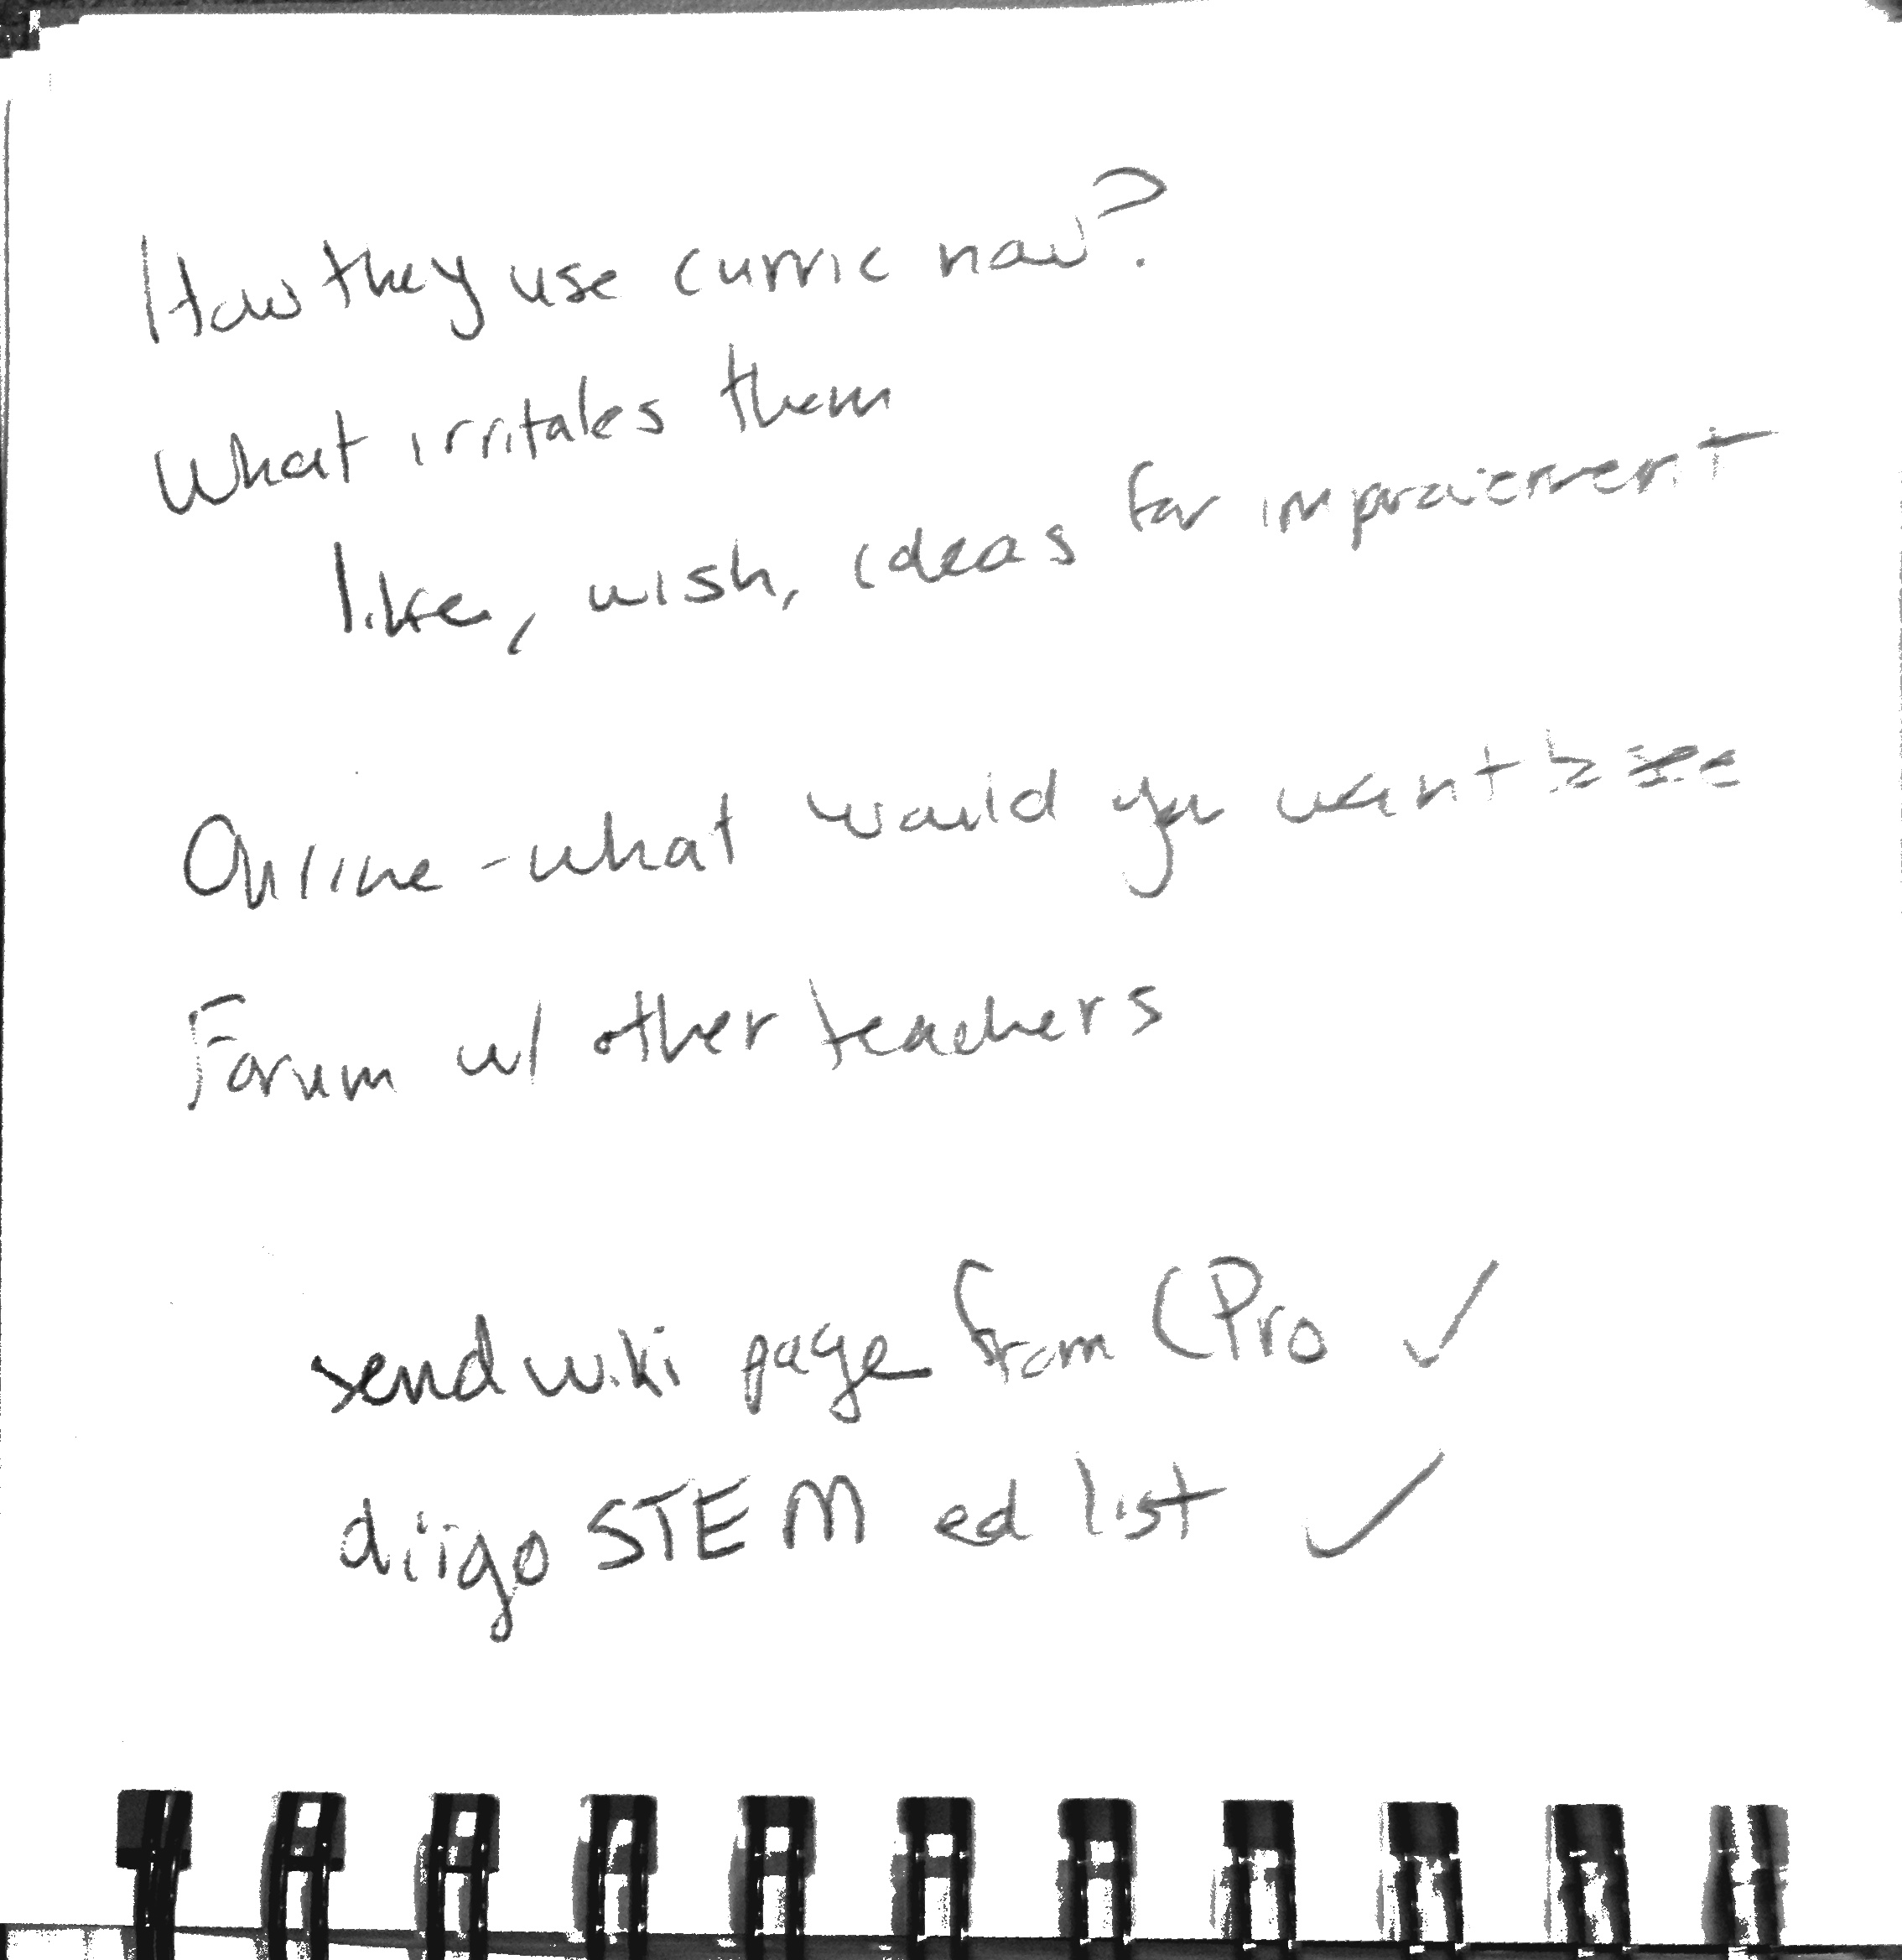 How they use curric now?
What irritates them
like, wish, ideas for improvement
Online - what would you want to see
Forum w/ other teachers
send wiki page from CPro ✓
diigo STEM ed list ✓